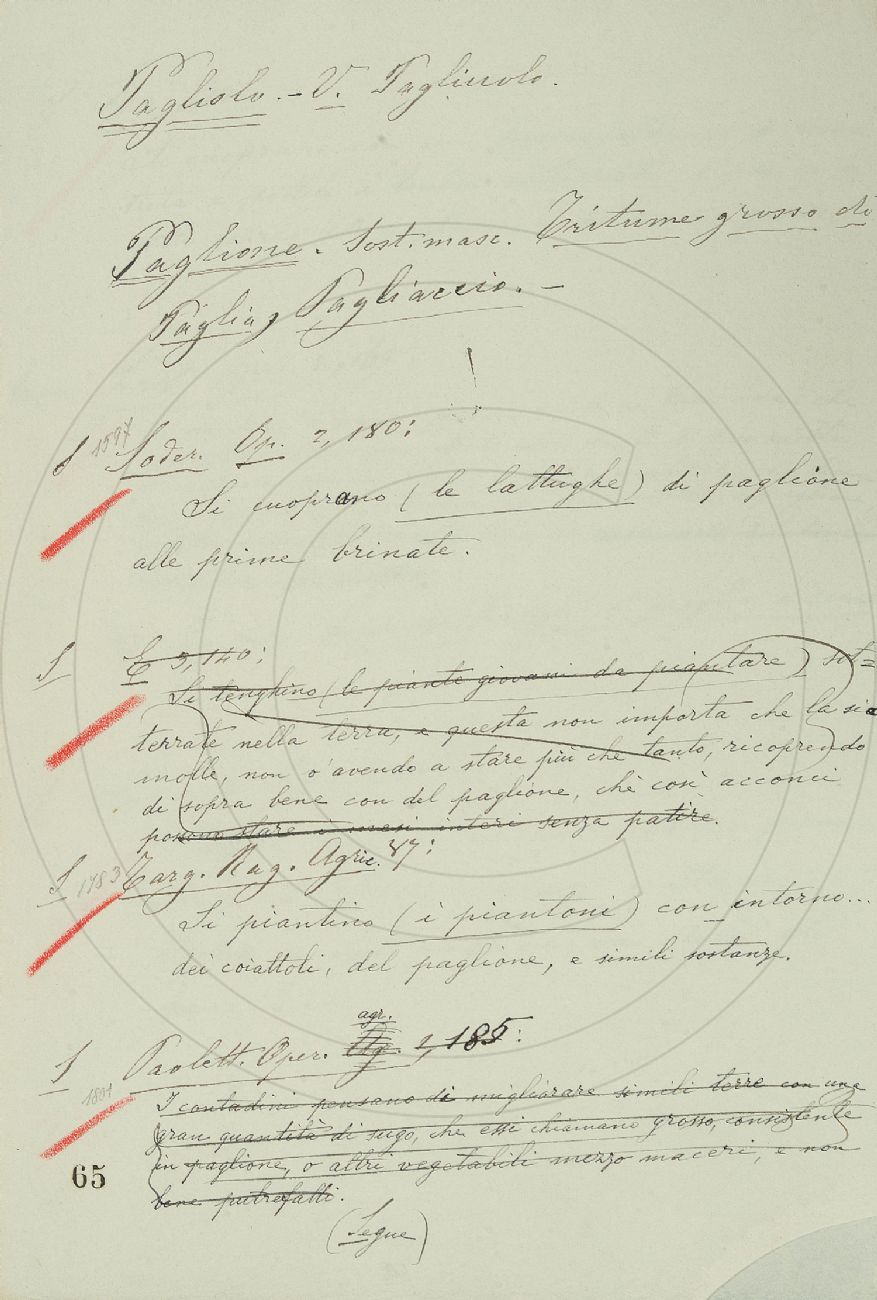 Pagliolo. - V. Pagliuolo.
Paglione. Sost. masc. Tritume grosso di
Paglia, Pagliaccio. -
S 1597 Soder. Op. 2, 180:
Si cuoprano (le lattughe) di paglione
alle prime brinate.
S E 3, 140:
Si tenghino (le piante giovani da piantare) sot=
terrate nella terra, e questa non importa che la sia
molle, non v'avendo a stare più che tanto, ricoprendo
di sopra bene con del paglione, chè così acconci
possono stare i mesi interi senza patire.
S 1783 Targ. Rag. Agric. 87:
Si piantino (i piantoni) con intorno...
dei coiattoli, del paglione, e simili sostanze.
agr.
S Paolett. Oper. 2, 185:
1801
I contadini pensano di migliorare simili terre con una
gran quantità di sugo, che essi chiamano grosso, consistente
in paglione, o altri vegetabili mezzo maceri, e non
bene putrefatti.
65
(Segue)